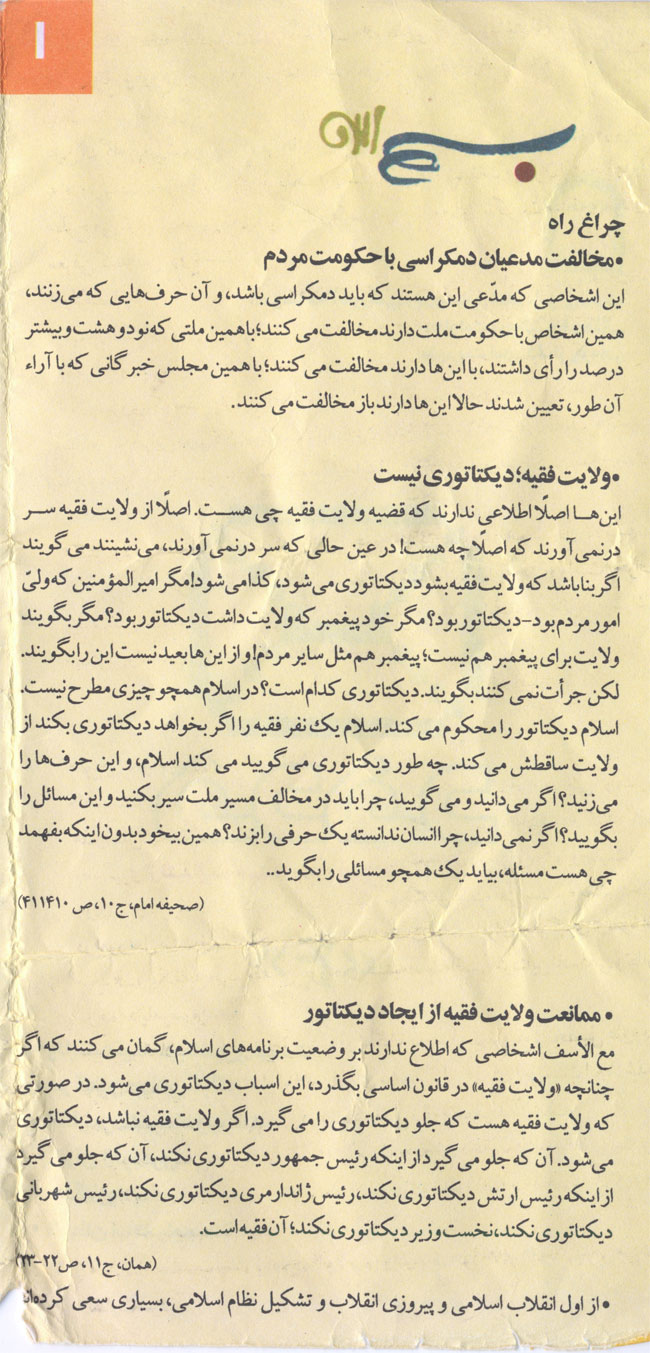 ۱
بسم الله
چراغ راه
•مخالفت مدعیان دمکراسی با حکومت مردم
این اشخاصی که مدّعی این هستند که باید دمکراسی باشد، و آن حرف‌هایی که می‌زنند،
همین اشخاص با حکومت ملت دارند مخالفت می کنند؛ با همین ملتی که نود و هشت و بیشتر
درصد را رأی داشتند، با این‌ها دارند مخالفت می کنند؛ با همین مجلس خبرگانی که با آراء
آن طور، تعیین شدند حالا این‌ها دارند باز مخالفت می کنند.
•ولایت فقیه؛ دیکتاتوری نیست
این‌هــا اصلًا اطلاعی ندارند که قضیه ولایت فقیه چی هســت. اصلًا از ولایت فقیه ســر
درنمی‌آورند که اصلًا چه هست! در عین حالی که سر درنمی‌آورند، می‌نشینند می گویند
اگر بنا باشد که ولایت فقیه بشود دیکتاتوری می‌شود، کذا می‌شود! مگر امیرالمؤمنین که ولیّ
امور مردم بود-دیکتاتور بود؟ مگر خود پیغمبر که ولایت داشت دیکتاتور بود؟ مگر بگویند
ولایت برای پیغمبر هم نیست؛ پیغمبر هم مثل سایر مردم! و از این‌ها بعید نیست این را بگویند.
لکن جرأت نمی کنند بگویند. دیکتاتوری کدام است؟ در اسلام همچو چیزی مطرح نیست.
اسلام دیکتاتور را محکوم می کند. اسلام یك نفر فقیه را اگر بخواهد دیکتاتوری بکند از
ولایت ساقطش می کند. چه طور دیکتاتوری می گویید می کند اسلام، و این حرف‌ها را
می‌زنید؟ اگر می‌دانید و می گویید، چرا باید در مخالف مسیر ملت سیر بکنید و این مسائل را
بگویید؟ اگر نمی‌دانید، چرا انسان ندانسته یك حرفی را بزند؟ همین بیخود بدون اینکه بفهمد
چی هست مسئله، بیاید یك همچو مسائلی را بگوید..
(صحیفه امام، ج۱۰، ص ۴۱۱۴۱۰)
• ممانعت ولایت فقیه از ایجاد دیکتاتور
مع الأسف اشخاصی که اطلاع ندارند بر وضعیت برنامه‌های اسلام، گمان می کنند که اگر
چنانچه «ولایت فقیه» در قانون اساسی بگذرد، این اسباب دیکتاتوری می‌شود. در صورتی
که ولایت فقیه هست که جلو دیکتاتوری را می گیرد. اگر ولایت فقیه نباشد، دیکتاتوری
می‌شود. آن که جلو می گیرد از اینکه رئیس جمهور دیکتاتوری نکند، آن که جلو می گیرد
از اینکه رئیس ارتش دیکتاتوری نکند، رئیس ژاندارمری دیکتاتوری نکند، رئیس شهربانی
دیکتاتوری نکند، نخست وزیر دیکتاتوری نکند؛ آن فقیه است.
(همان، ج۱۱، ص۲۲-۲۳)
• از اول انقلاب اسلامی و پیروزی انقلاب و تشکیل نظام اسلامی، بسیاری سعی کرده‌اند